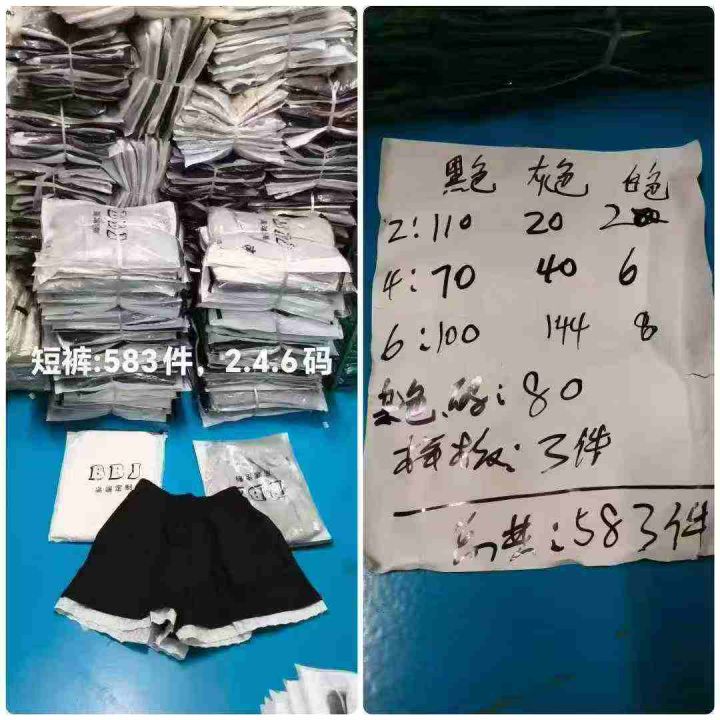 BBJ
短裤:583件，2.4.6码
BBJ
高端定制
BBJ
黑色 灰色 白色
2:110 20 2
4:70 40 6
6:100 144 8
色码:80
样板:3件
总共:583件